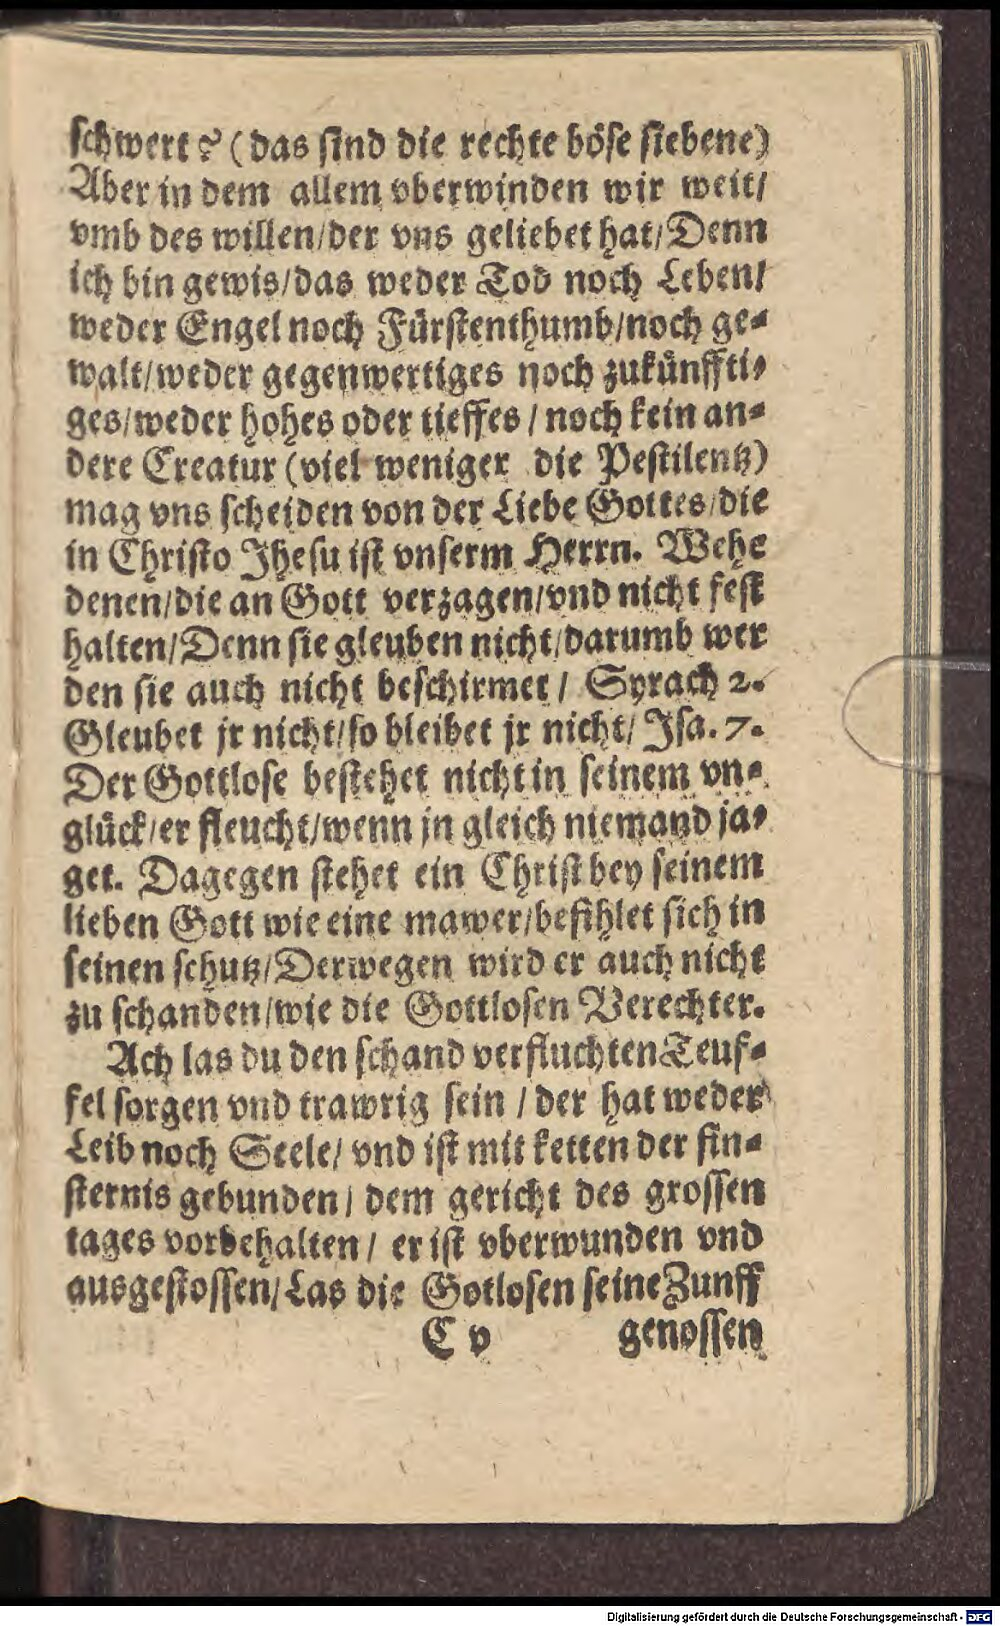 schwert? (das sind die rechte böse siebene)
Aber in dem allem vberwinden wir weit/
vmb des willen/der vns geliebet hat/Denn
ich bin gewis/das weder Tod noch Leben/
weder Engel noch Fürstenthumb/noch ge-
walt/weder gegenwertiges noch zukünffti-
ges/weder hohes oder tieffes / noch kein an-
dere Creatur (viel weniger die Pestilentz)
mag vns scheiden von der Liebe Gottes/die
in Christo Jhesu ist vnserm Herrn. Wehe
denen/die an Gott verzagen/vnd nicht fest
halten/Denn sie gleuben nicht/darumb wer
den sie auch nicht beschirmet / Syrach 2.
Gleubet jr nicht/so bleibet jr nicht/ Jsa. 7.
Der Gottlose bestehet nicht in seinem vn-
glück/er fleucht/wenn jn gleich niemand ja-
get. Dagegen stehet ein Christ bey seinem
lieben Gott wie eine mawer/befihlet sich in
seinen schutz/Derwegen wird er auch nicht
zu schanden/wie die Gottlosen Verechter.
Ach las du den schand verfluchten Teuf-
fel sorgen vnd trawrig sein / der hat weder
Leib noch Seele/ vnd ist mit ketten der fin-
sternis gebunden / dem gericht des grossen
tages vorbehalten / er ist vberwunden vnd
ausgestossen/Las die Gotlosen seine Zunff
C v genossen
Digitalisierung gefördert durch die Deutsche Forschungsgemeinschaft - DFG